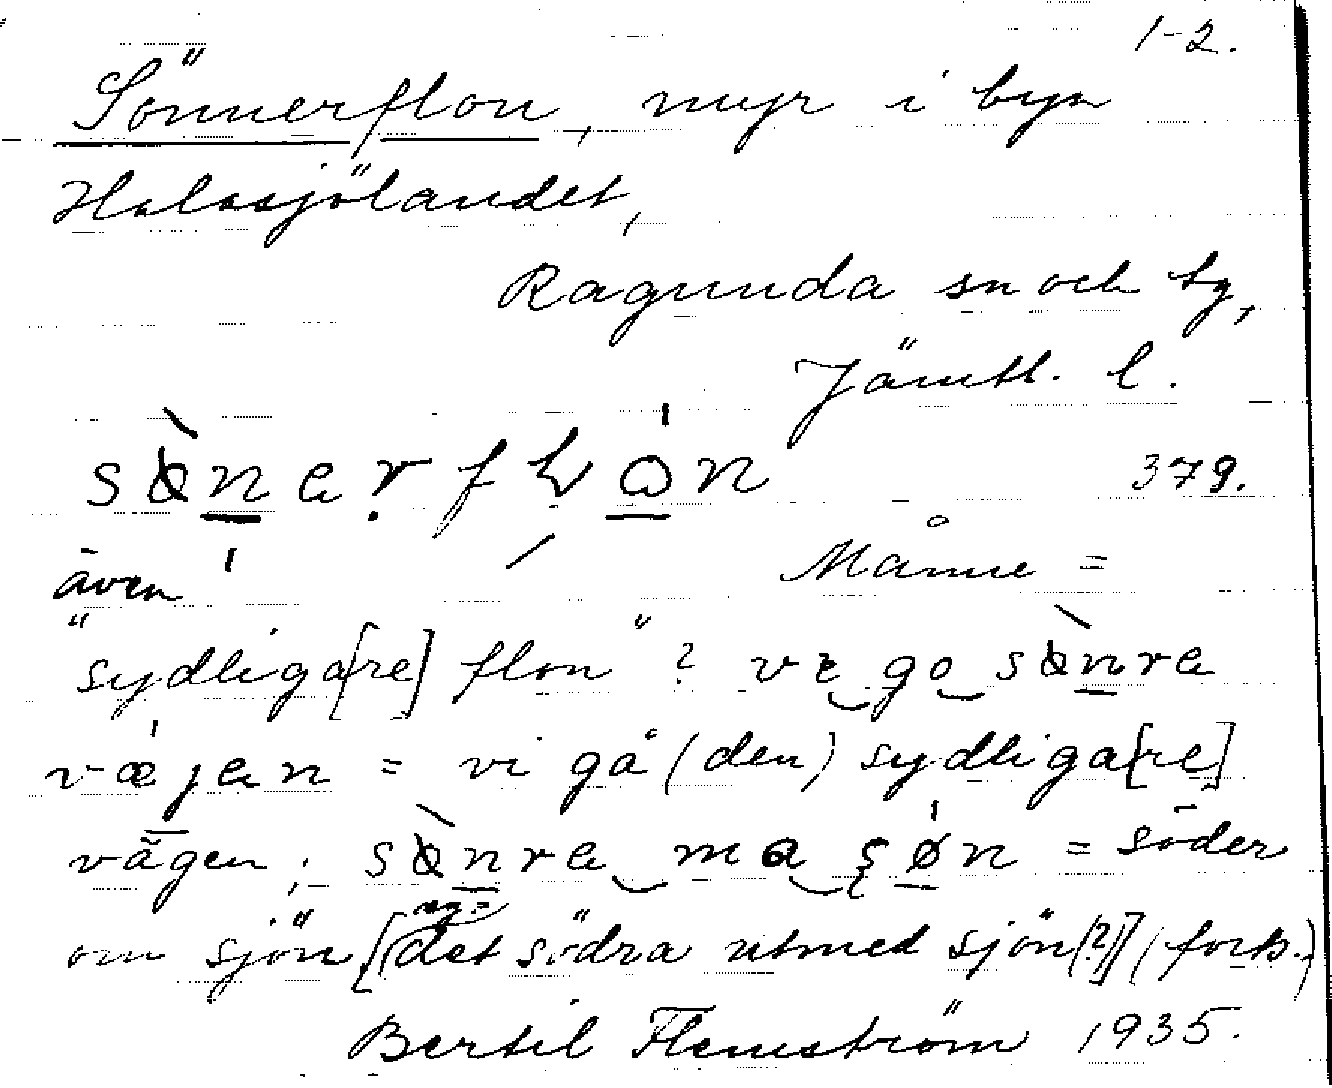 1-2.
Sönnerflon, myr i byn
Halasjölandet,
Ragunda sn och tg,
Jämtl. l.
379.
även
Månne =
"sydliga[re] flon"? ve go sònre
væjen = vi gå (den) sydliga[re]
vägen; sònre ma ʂøn = söder
om sjön [(eg.= det södra utmed sjön(?)] (forts.)
Bertil Flemström 1935.